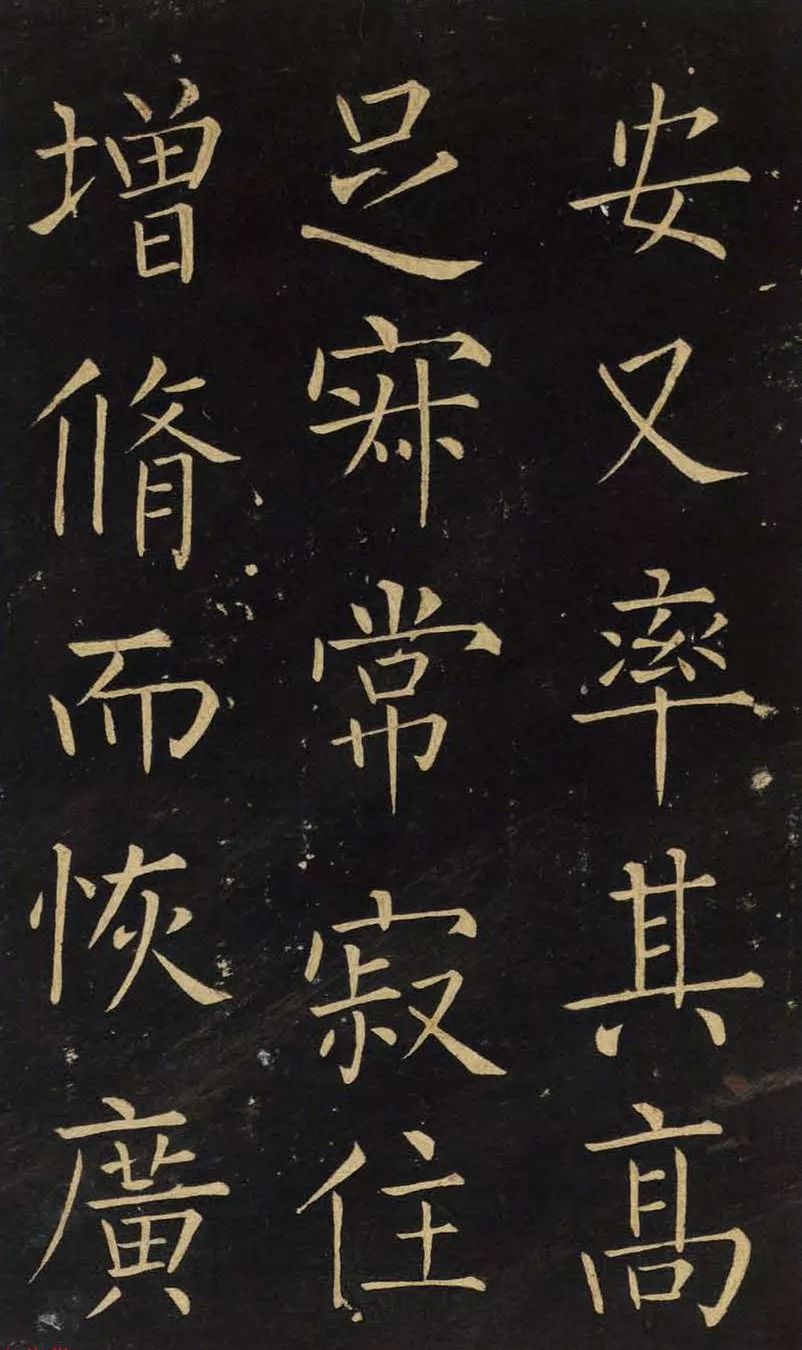 安又率其高
足㝥常寂住
增脩而恢廣